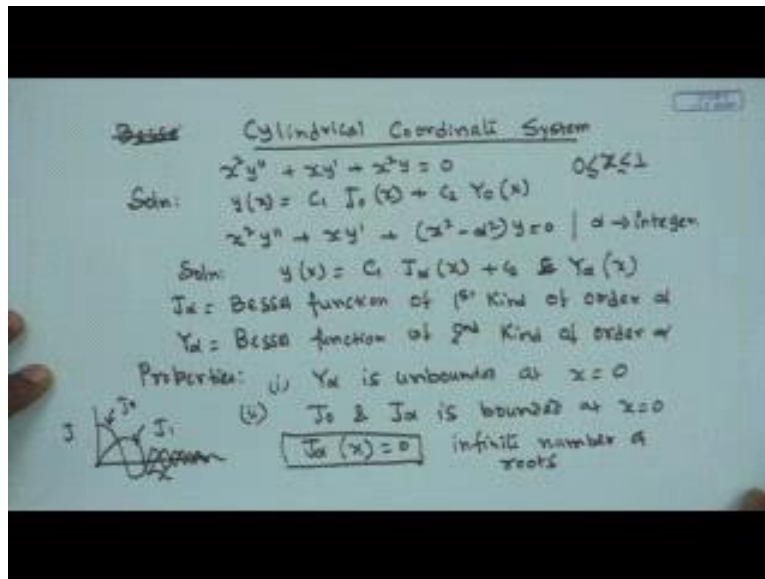 Cylindrical Coordinate System
x²y" + xy' + x²y = 0 0≤x≤1
Soln: y(x) = C₁ J₀(x) + C₂ Y₀(x)
x²y" + xy' + (x² - α²)y = 0 | α → integer
Soln: y(x) = C₁ Jα(x) + C₂ Yα(x)
Jα = Bessel function of 1st Kind of order α
Yα = Bessel function of 2nd Kind of order α
Properties: (i) Yα is unbounded at x = 0
(ii) J₀ & Jα is bounded at x = 0
Jα(x) = 0 infinite number of
roots
J J₀ J₁
x